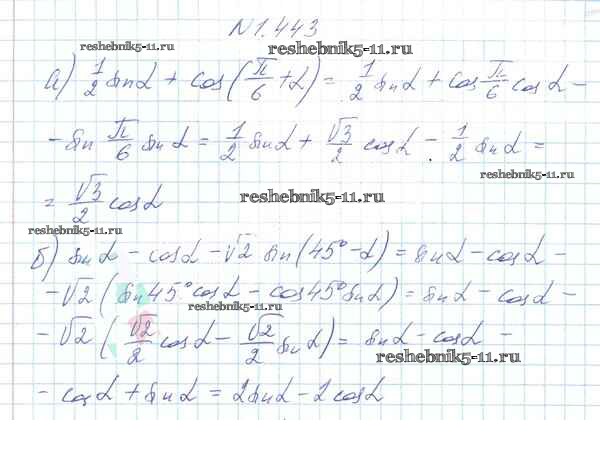 №1.443
reshebnik5-11.ru reshebnik5-11.ru
а) 1/2 sinα + cos(π/6 + α) = 1/2 sinα + cos π/6 cosα -
- sin π/6 sinα = 1/2 sinα + √3/2 cosα - 1/2 sinα =
reshebnik5-11.ru
= √3/2 cosα
reshebnik5-11.ru reshebnik5-11.ru
б) sinα - cosα - √2 sin(45° - α) = sinα - cosα -
- √2 (sin45° cosα - cos45° sinα) = sinα - cosα -
reshebnik5-11.ru
- √2 (√2/2 cosα - √2/2 sinα) = sinα - cosα -
reshebnik5-11.ru
- cosα + sinα = 2sinα - 2cosα